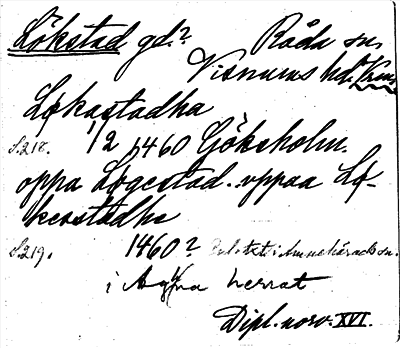 Lökstad gd.? Råda sn,
Visnums hd. Vrm.
Løkastadha
S.218. 1/2 1460 Göksholm.
oppa Løgestad. uppaa Lø-
kerstadhe
S.219. 1460?
i Agna herrat
Dipl. norv. XVI.